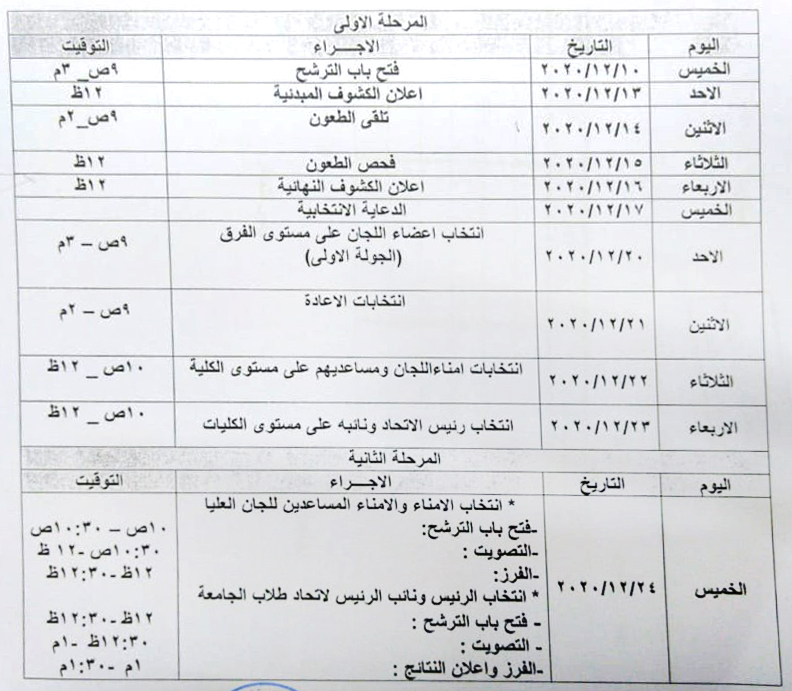 المرحلة الاولى
اليوم التاريخ الاجـــراء التوقيت
الخميس ٢٠٢٠/١٢/١٠ فتح باب الترشح ٩ص_ ٣م
الاحد ٢٠٢٠/١٢/١٣ اعلان الكشوف المبدئية ١٢ظ
الاثنين ٢٠٢٠/١٢/١٤ تلقى الطعون ٩ص_٢م
الثلاثاء ٢٠٢٠/١٢/١٥ فحص الطعون ١٢ظ
الاربعاء ٢٠٢٠/١٢/١٦ اعلان الكشوف النهائية ١٢ظ
الخميس ٢٠٢٠/١٢/١٧ الدعاية الانتخابية
الاحد ٢٠٢٠/١٢/٢٠ انتخاب اعضاء اللجان على مستوى الفرق ٩ص – ٣م
(الجولة الاولى)
الاثنين ٢٠٢٠/١٢/٢١ انتخابات الاعادة ٩ص – ٢م
الثلاثاء ٢٠٢٠/١٢/٢٢ انتخابات امناءاللجان ومساعديهم على مستوى الكلية ١٠ص _ ١٢ظ
الاربعاء ٢٠٢٠/١٢/٢٣ انتخاب رئيس الاتحاد ونائبه على مستوى الكليات ١٠ص _ ١٢ظ
المرحلة الثانية
اليوم التاريخ الاجـــراء التوقيت
الخميس ٢٠٢٠/١٢/٢٤ * انتخاب الامناء والامناء المساعدين للجان العليا
-فتح باب الترشح: ١٠ص – ١٠:٣٠ص
-التصويت : ١٠:٣٠ص -١٢ ظ
-الفرز: ١٢ظ -١٢:٣٠ظ
* انتخاب الرئيس ونائب الرئيس لاتحاد طلاب الجامعة
- فتح باب الترشح : ١٢ظ -١٢:٣٠ظ
- التصويت : ١٢:٣٠ظ -١م
-الفرز واعلان النتائج : ١م -١:٣٠م